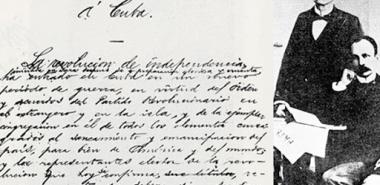 á Cuba.
La revolucion de independencia,
iniciada en Yara despues de preparacion gloriosa y cruenta,
ha entrado en Cuba en un nuevo
periodo de guerra, en virtud del órden
y acuerdos del Partido Revolucionario en
el extranjero y en la isla, y de la ejemplar
congregacion en él de todos los elementos consa
grados al saneamiento y emancipacion del
país, para bien de América y del mundo;
y los representantes electos de la revo-
lucion que hoy se confirma,